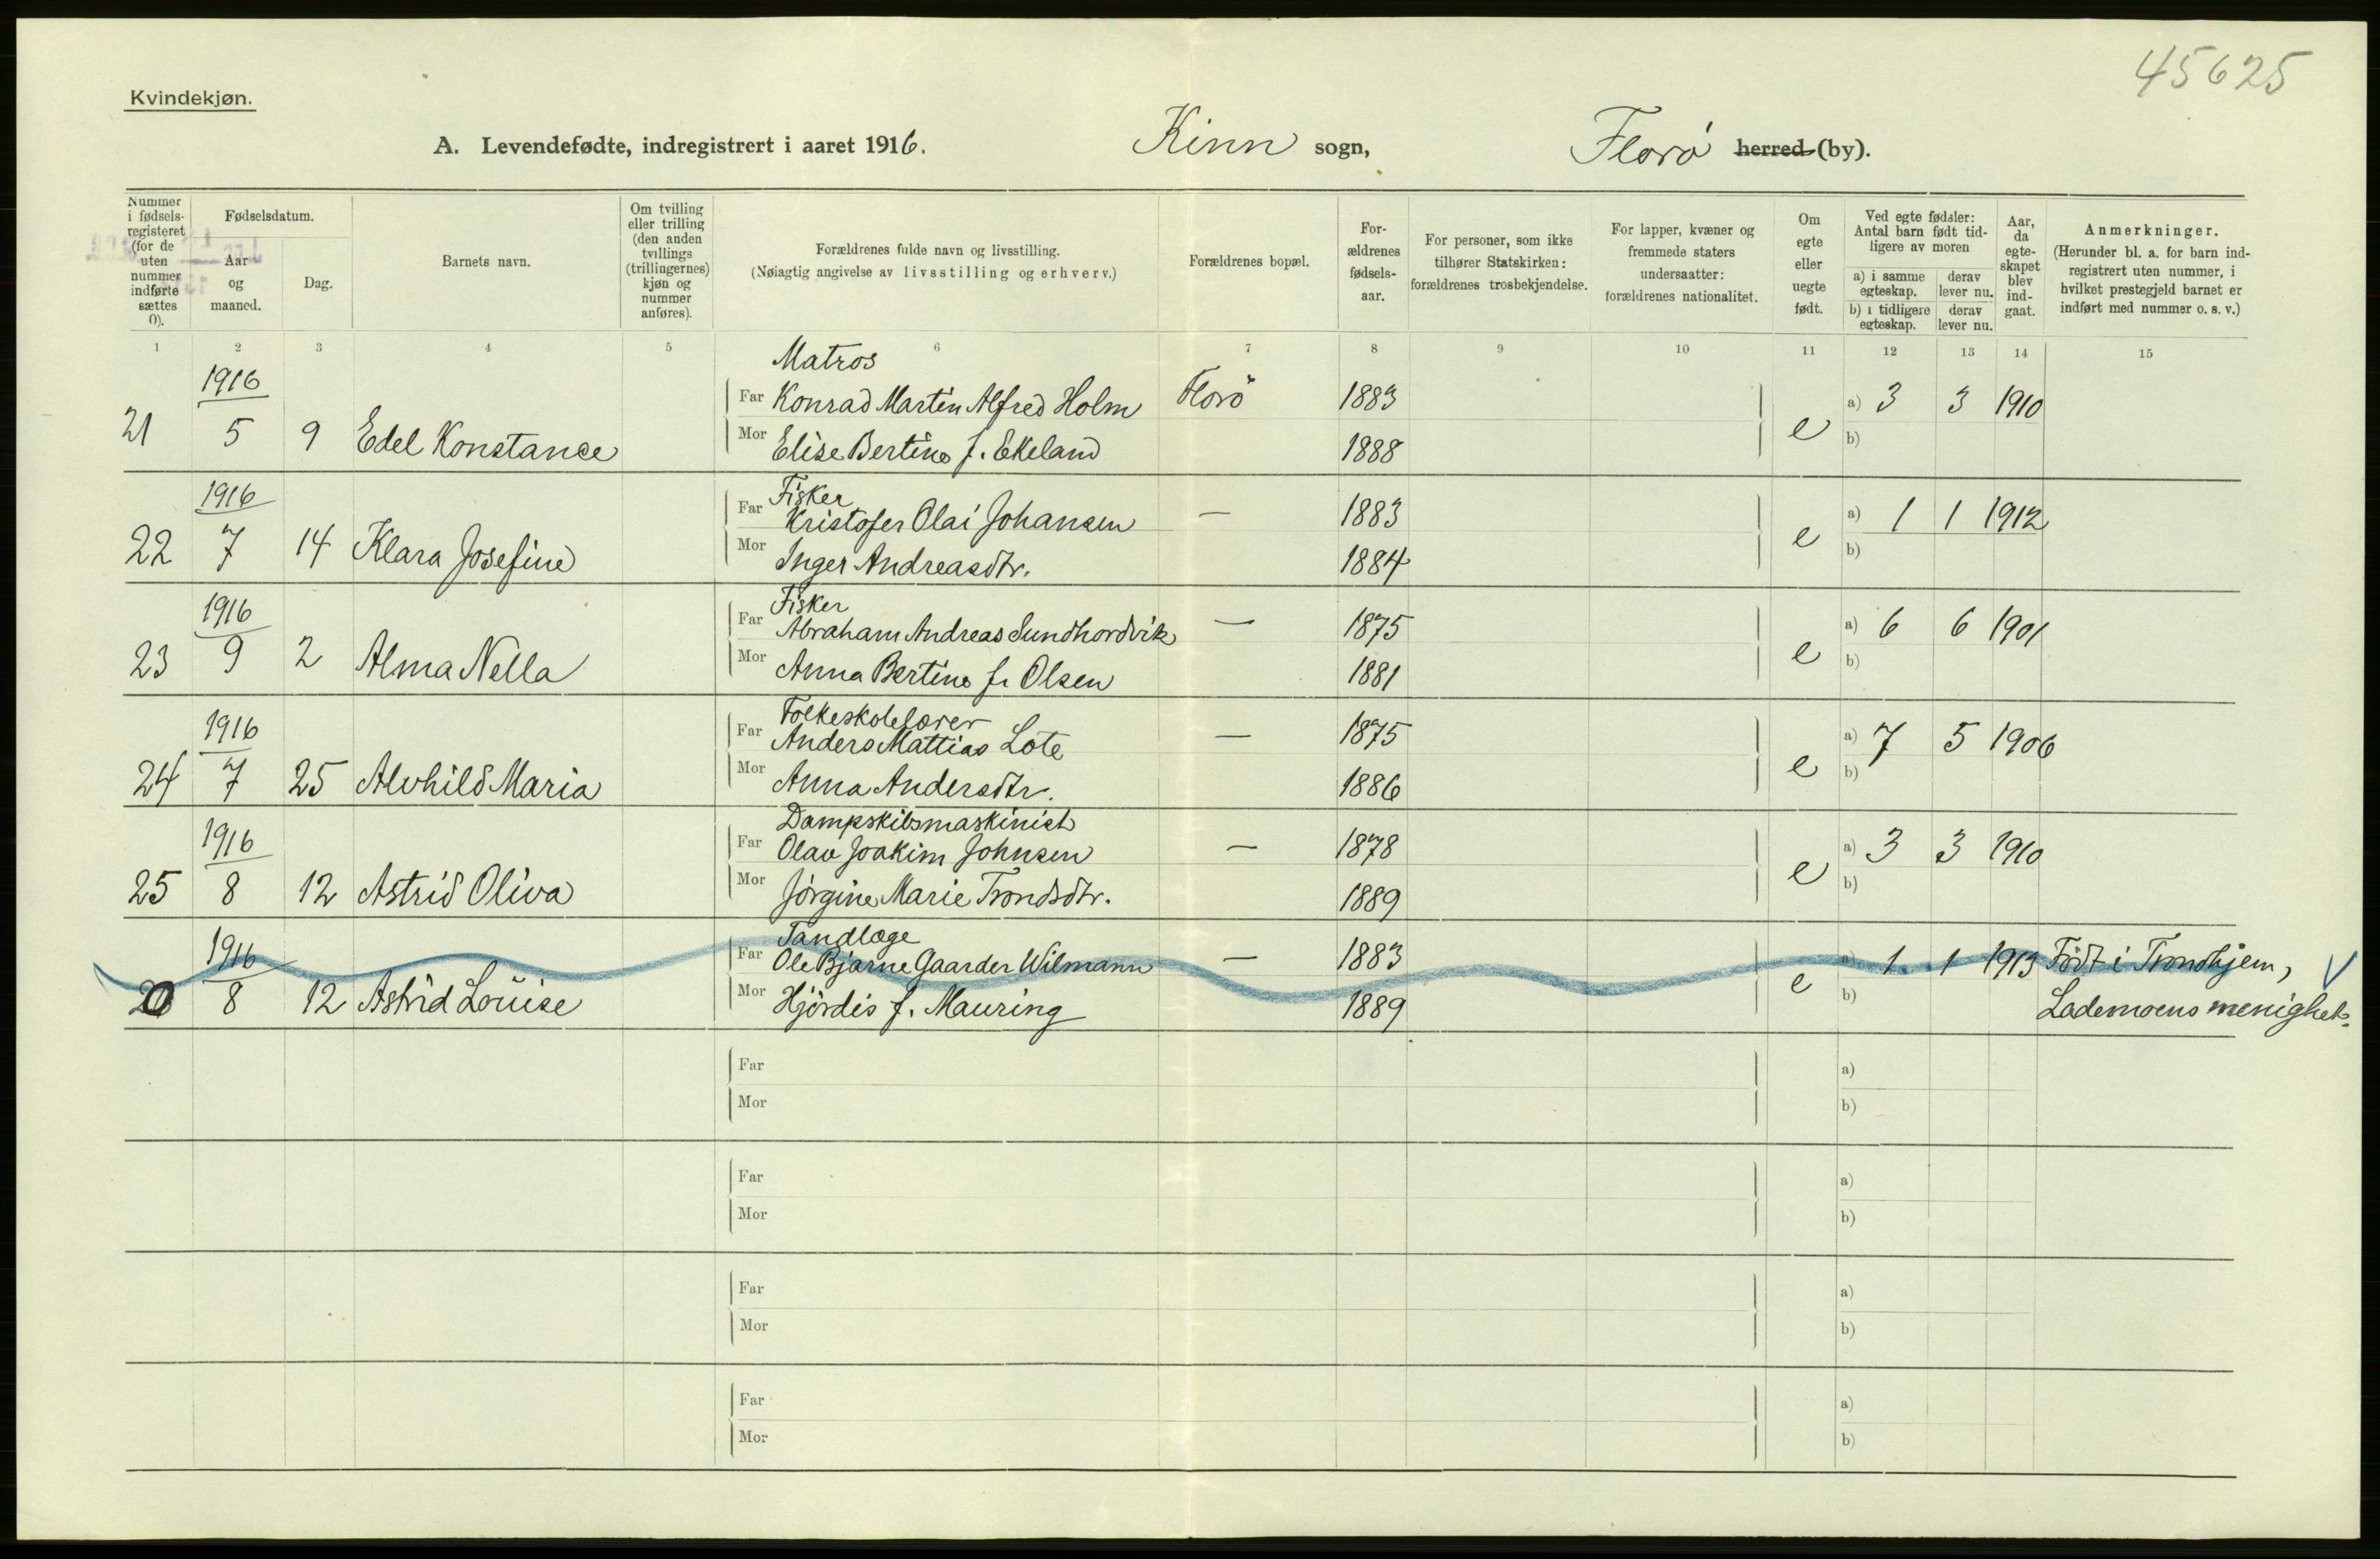 45625
Kvindekjøn.
A. Levendefødte, indregistrert i aaret 1916. Kinn sogn, Florø herred (by).
Nummer i fødselsregisteret (for de uten nummer indførte sættes 0).
Fødselsdatum.
Aar og maaned.
Dag.
Barnets navn.
Om tvilling eller trilling (den anden tvillings (trillingernes) kjøn og nummer anføres).
Forældrenes fulde navn og livsstilling.
(Nøiagtig angivelse av livsstilling og erhverv.)
Forældrenes bopæl.
Forældrenes fødselsaar.
For personer, som ikke tilhører Statskirken: forældrenes trosbekjendelse.
For lapper, kvæner og fremmede staters undersaatter: forældrenes nationalitet.
Om egte eller uegte født.
Ved egte fødsler: Antal barn født tidligere av moren
a) i samme egteskap. derav lever nu.
b) i tidligere egteskap. derav lever nu.
Aar, da egteskapet blev indgaat.
Anmerkninger.
(Herunder bl. a. for barn indregistrert uten nummer, i hvilket prestegjeld barnet er indført med nummer o. s. v.)
1 2 3 4 5 6 7 8 9 10 11 12 13 14 15
1916 Matros
Far Konrad Martin Alfred Holm Florö 1883 a) 3 3 1910
21 5 9 Edel Konstance Mor Elise Bertine f. Ekeland 1888 e b)
1916 Fisker
Far Kristofer Olai Johansen — 1883 a) 1 1 1912
22 7 14 Klara Josefine Mor Inger Andreasdtr. 1884 e b)
1916 Fisker
Far Abraham Andreas Sundhordvik — 1875 a) 6 6 1901
23 9 2 Alma Nella Mor Anna Bertine f. Olsen 1881 e b)
1916 Folkeskolelærer
Far Anders Mattias Lote — 1875 a) 7 5 1906
24 7 25 Alvhild Maria Mor Anna Andersdtr. 1886 e b)
1916 Dampskibsmaskinist
Far Olav Joakim Johnsen — 1878 a) 3 3 1910
25 8 12 Astrid Oliva Mor Jörgine Marie Trondsdtr. 1889 e b)
1916 Tandlæge
Far Ole Bjarne Gaarder Wilmann — 1883 a) 1 1 1913 Födt i Trondhjem,
0 8 12 Astrid Louise Mor Hjördis f. Mauring 1889 e b) Lademoens menighet.
Far a)
Mor b)
Far a)
Mor b)
Far a)
Mor b)
Far a)
Mor b)